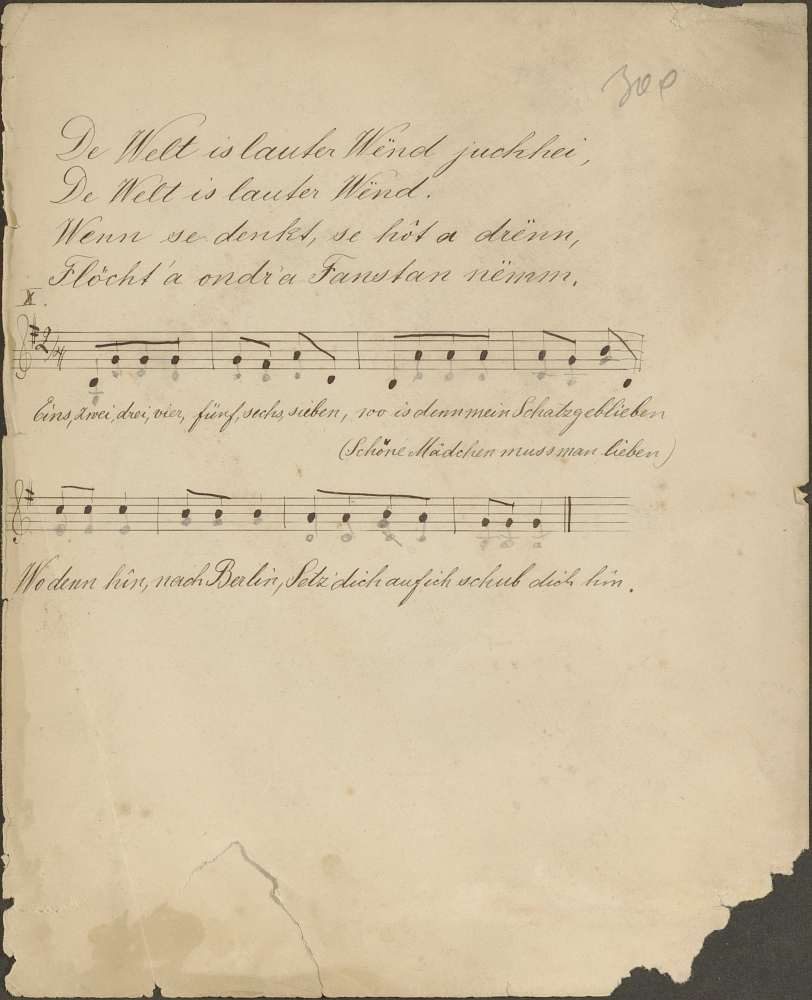 300
De Welt is lauter Wënd juchhei,
De Welt is lauter Wënd.
Wenn se denkt, se hôt a drënn,
Flöcht'a ondr'a Fanstan nëmm.
X.
2/4
Eins, zwei, drei, vier, fünf, sechs, sieben, wo is denn mein Schatz geblieben
(Schöne Mädchen muss man lieben)
Wo denn hin, nach Berlin, Setz' dich auf ich schub dich hin.